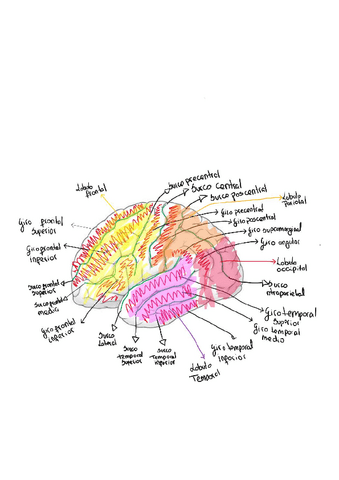 Lobulo
frontal
Surco precentral
Surco central
Surco poscentral
Lobulo
parietal
Giro precentral
Giro poscentral
Giro supramarginal
Giro angular
Lobulo
occipital
Surco
Giro temporal
superior
Giro temporal
medio
Giro temporal
inferior
Lobulo
Temporal
Surco
temporal
inferior
Surco
temporal
superior
Surco
Lateral
Giro frontal
inferior
Surco
medio
Surco frontal
superior
Giro frontal
inferior
Giro frontal
superior